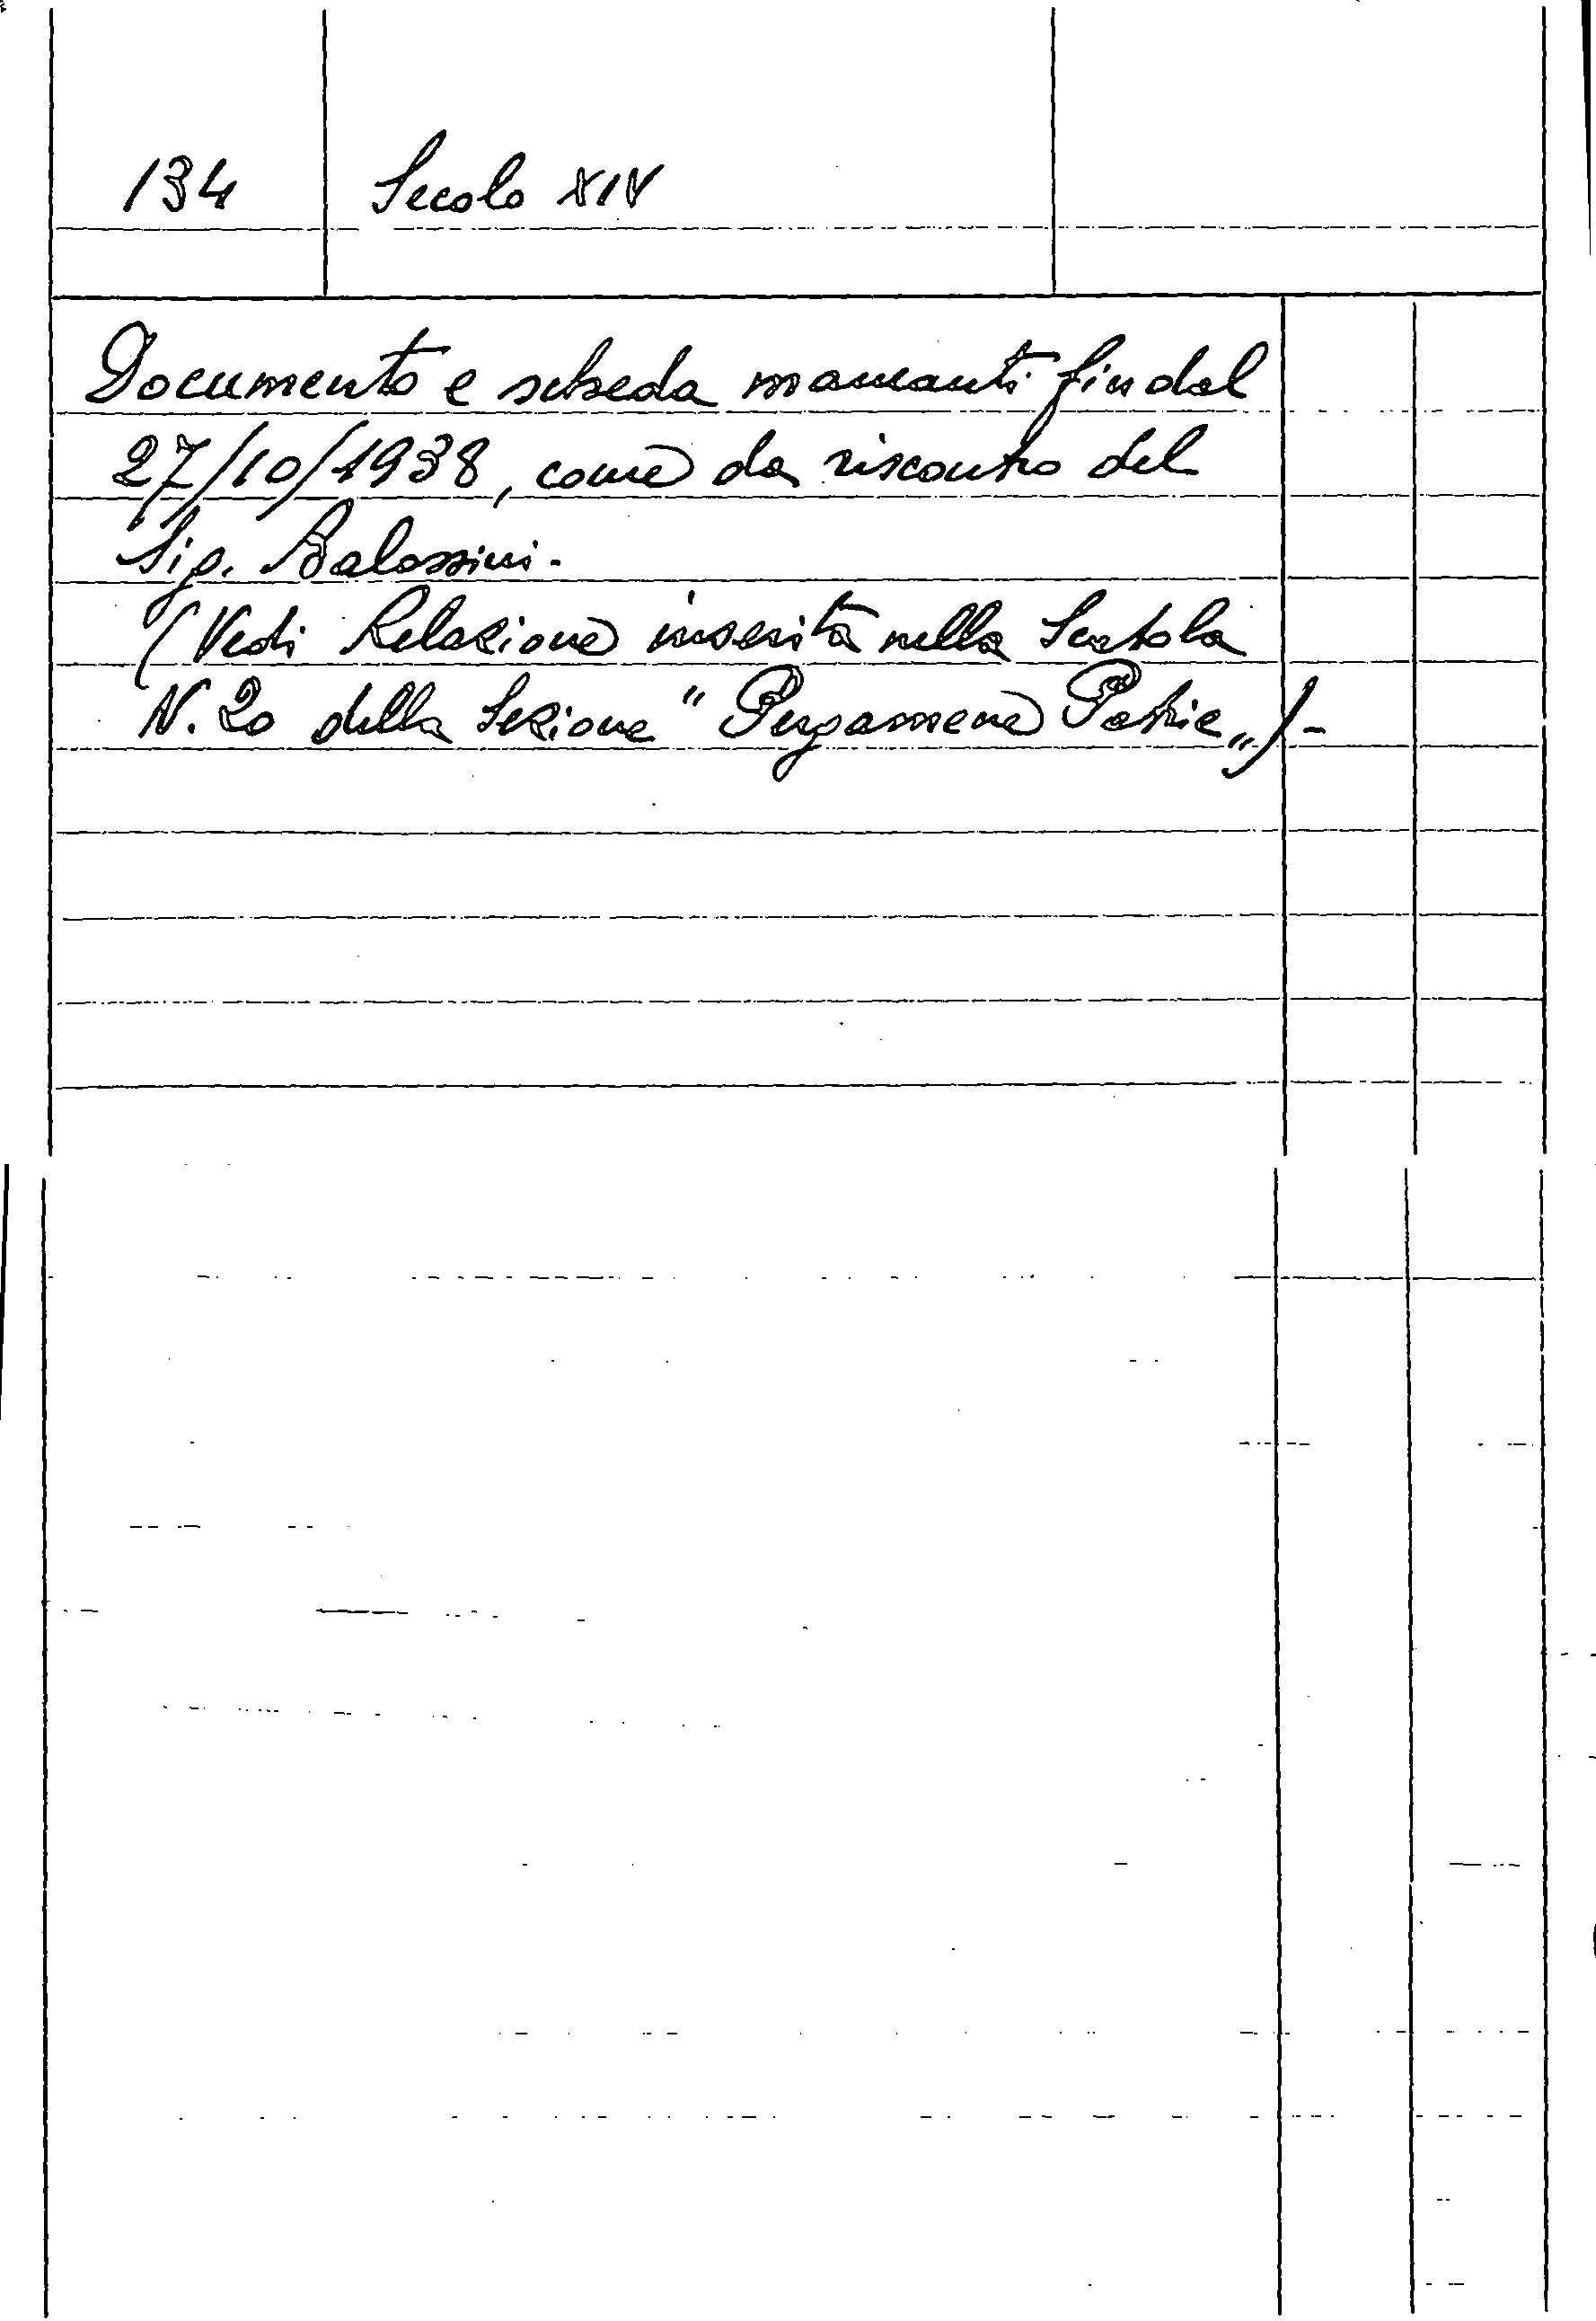 134 Secolo XIV
Documento e scheda mancanti fin dal
27/10/1938, come da riscontro del
Sig. Balossini.
(Vedi Relazione inserita nella Scatola
N. 20 della Sezione "Pergamene Patrie„)-